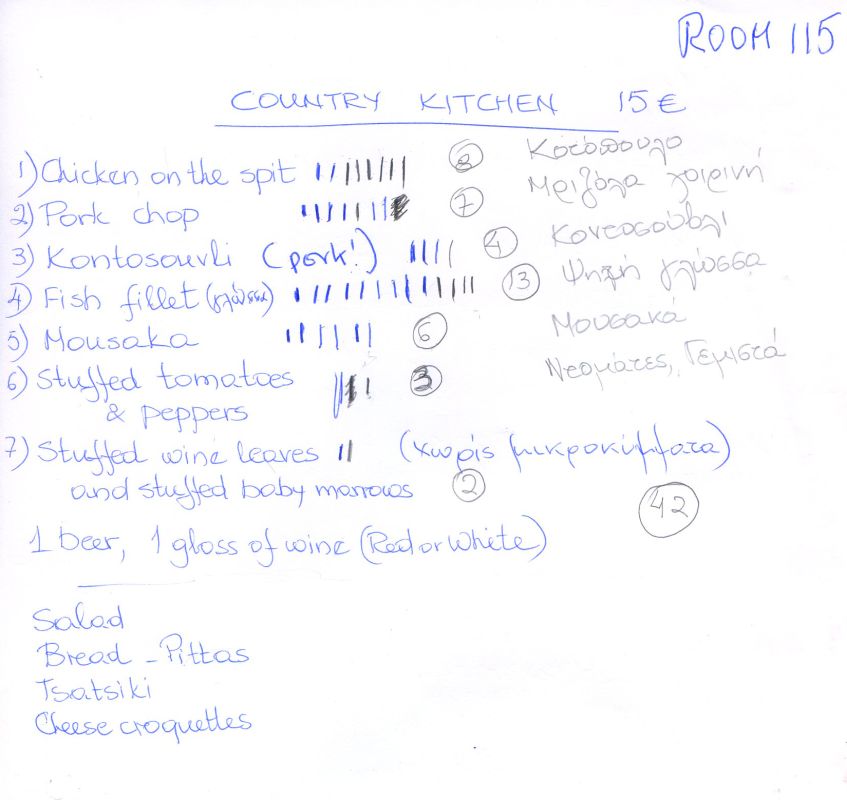 ROOM 115
COUNTRY KITCHEN 15 €
1) Chicken on the spit 8 Κοτόπουλο
2) Pork chop 7 Μπριζόλα χοιρινή
3) Kontosouvli (pork!) 4 Κοντοσούβλι
4) Fish fillet (γλώσσα) 13 Ψητή γλώσσα
5) Mousaka 6 Μουσακά
6) Stuffed tomatoes 3 Ντομάτες, Γεμιστά
& peppers
7) Stuffed wine leaves (χωρίς μικροκύμματα)
and stuffed baby marrows 2 42
1 beer, 1 glass of wine (Red or White)
Salad
Bread - Pittas
Tsatsiki
Cheese croquettes